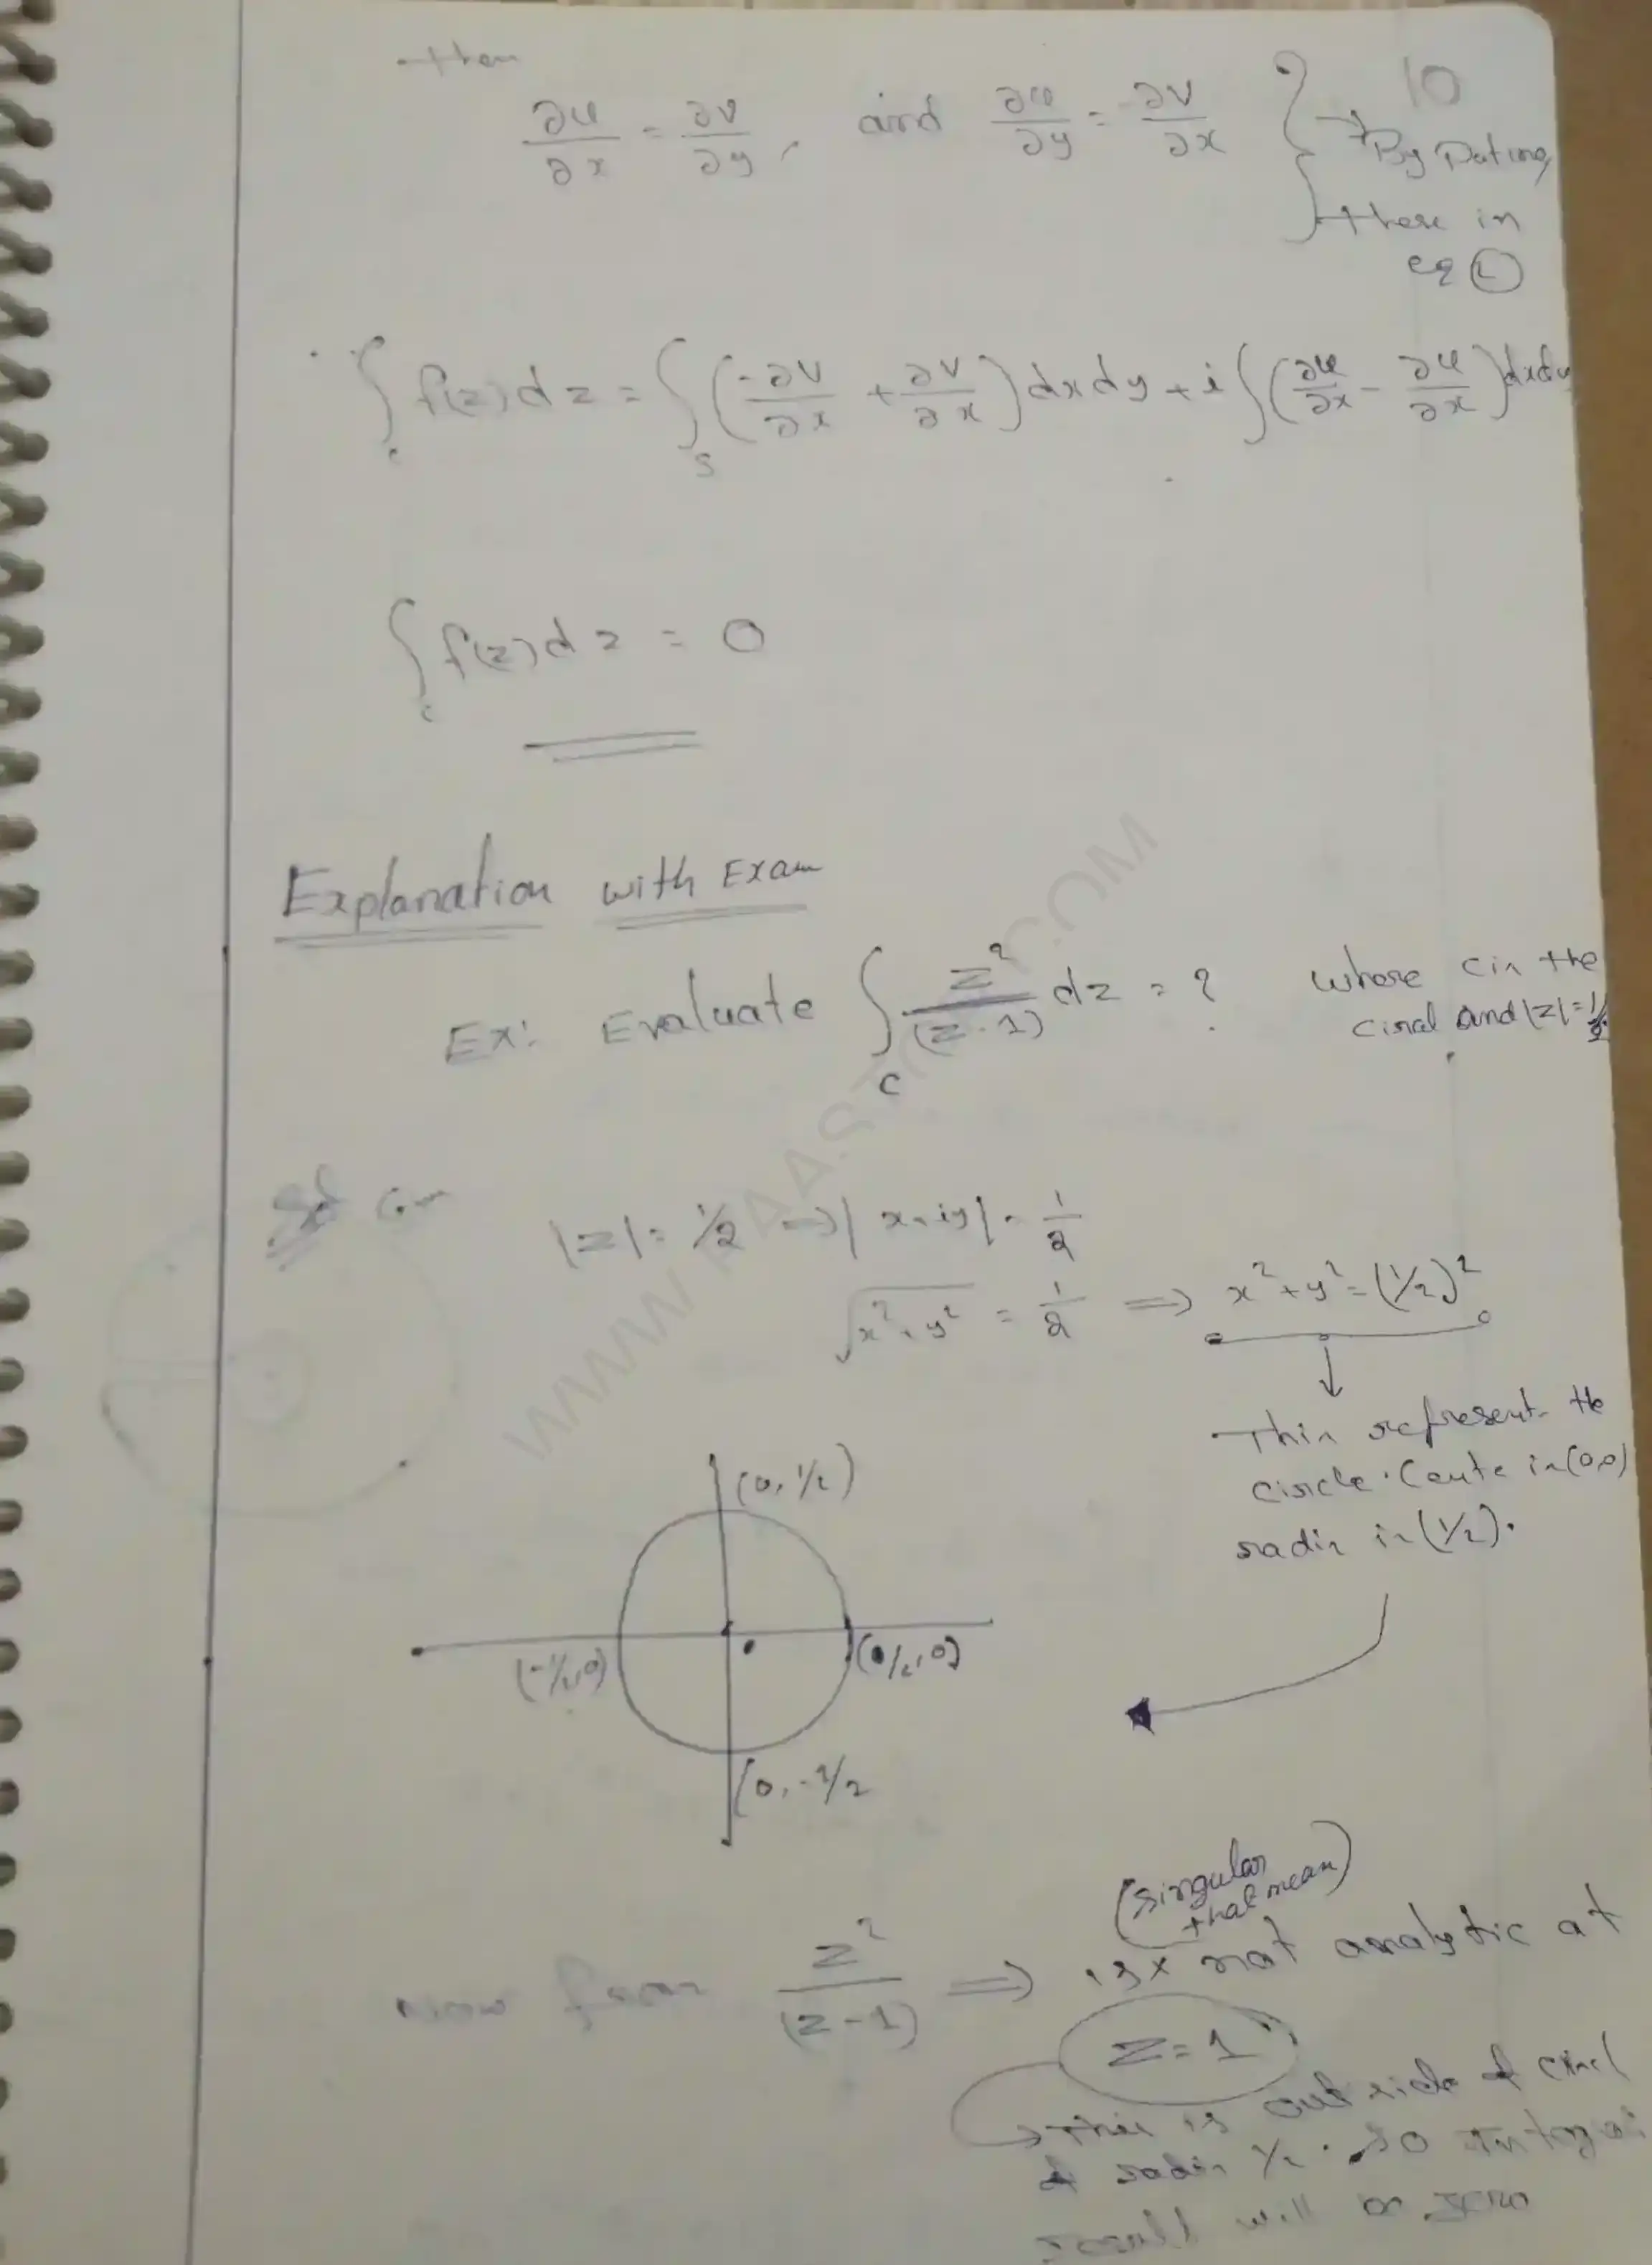 then
10
∂u/∂x = ∂v/∂y, and ∂u/∂y = -∂v/∂x } → By Puting
these in
eq ①
∫c f(z)dz = ∫s (-∂v/∂x + ∂v/∂x) dxdy + i ∫(∂u/∂x - ∂u/∂x) dxdy
∫c f(z)dz = 0
Explanation with Exam
Ex: Evaluate ∫c z²/(z-1) dz = ? whose c in the
circl and |z|=1/2
Sol
|z| = 1/2 ⇒ |x+iy| = 1/2
√x²+y² = 1/2 ⇒ x²+y² = (1/2)²
↓
This represent the
circle. Cente in (0,0)
radin in (1/2).
(0, 1/2)
(-1/2, 0)
(1/2, 0)
(0, -1/2
(singular
that mean)
Now from z²/(z-1) ⇒ is x not analytic at
z=1
→ This is out side of circl
of radin 1/2. so Integral
result will be zero
WWW.
.COM